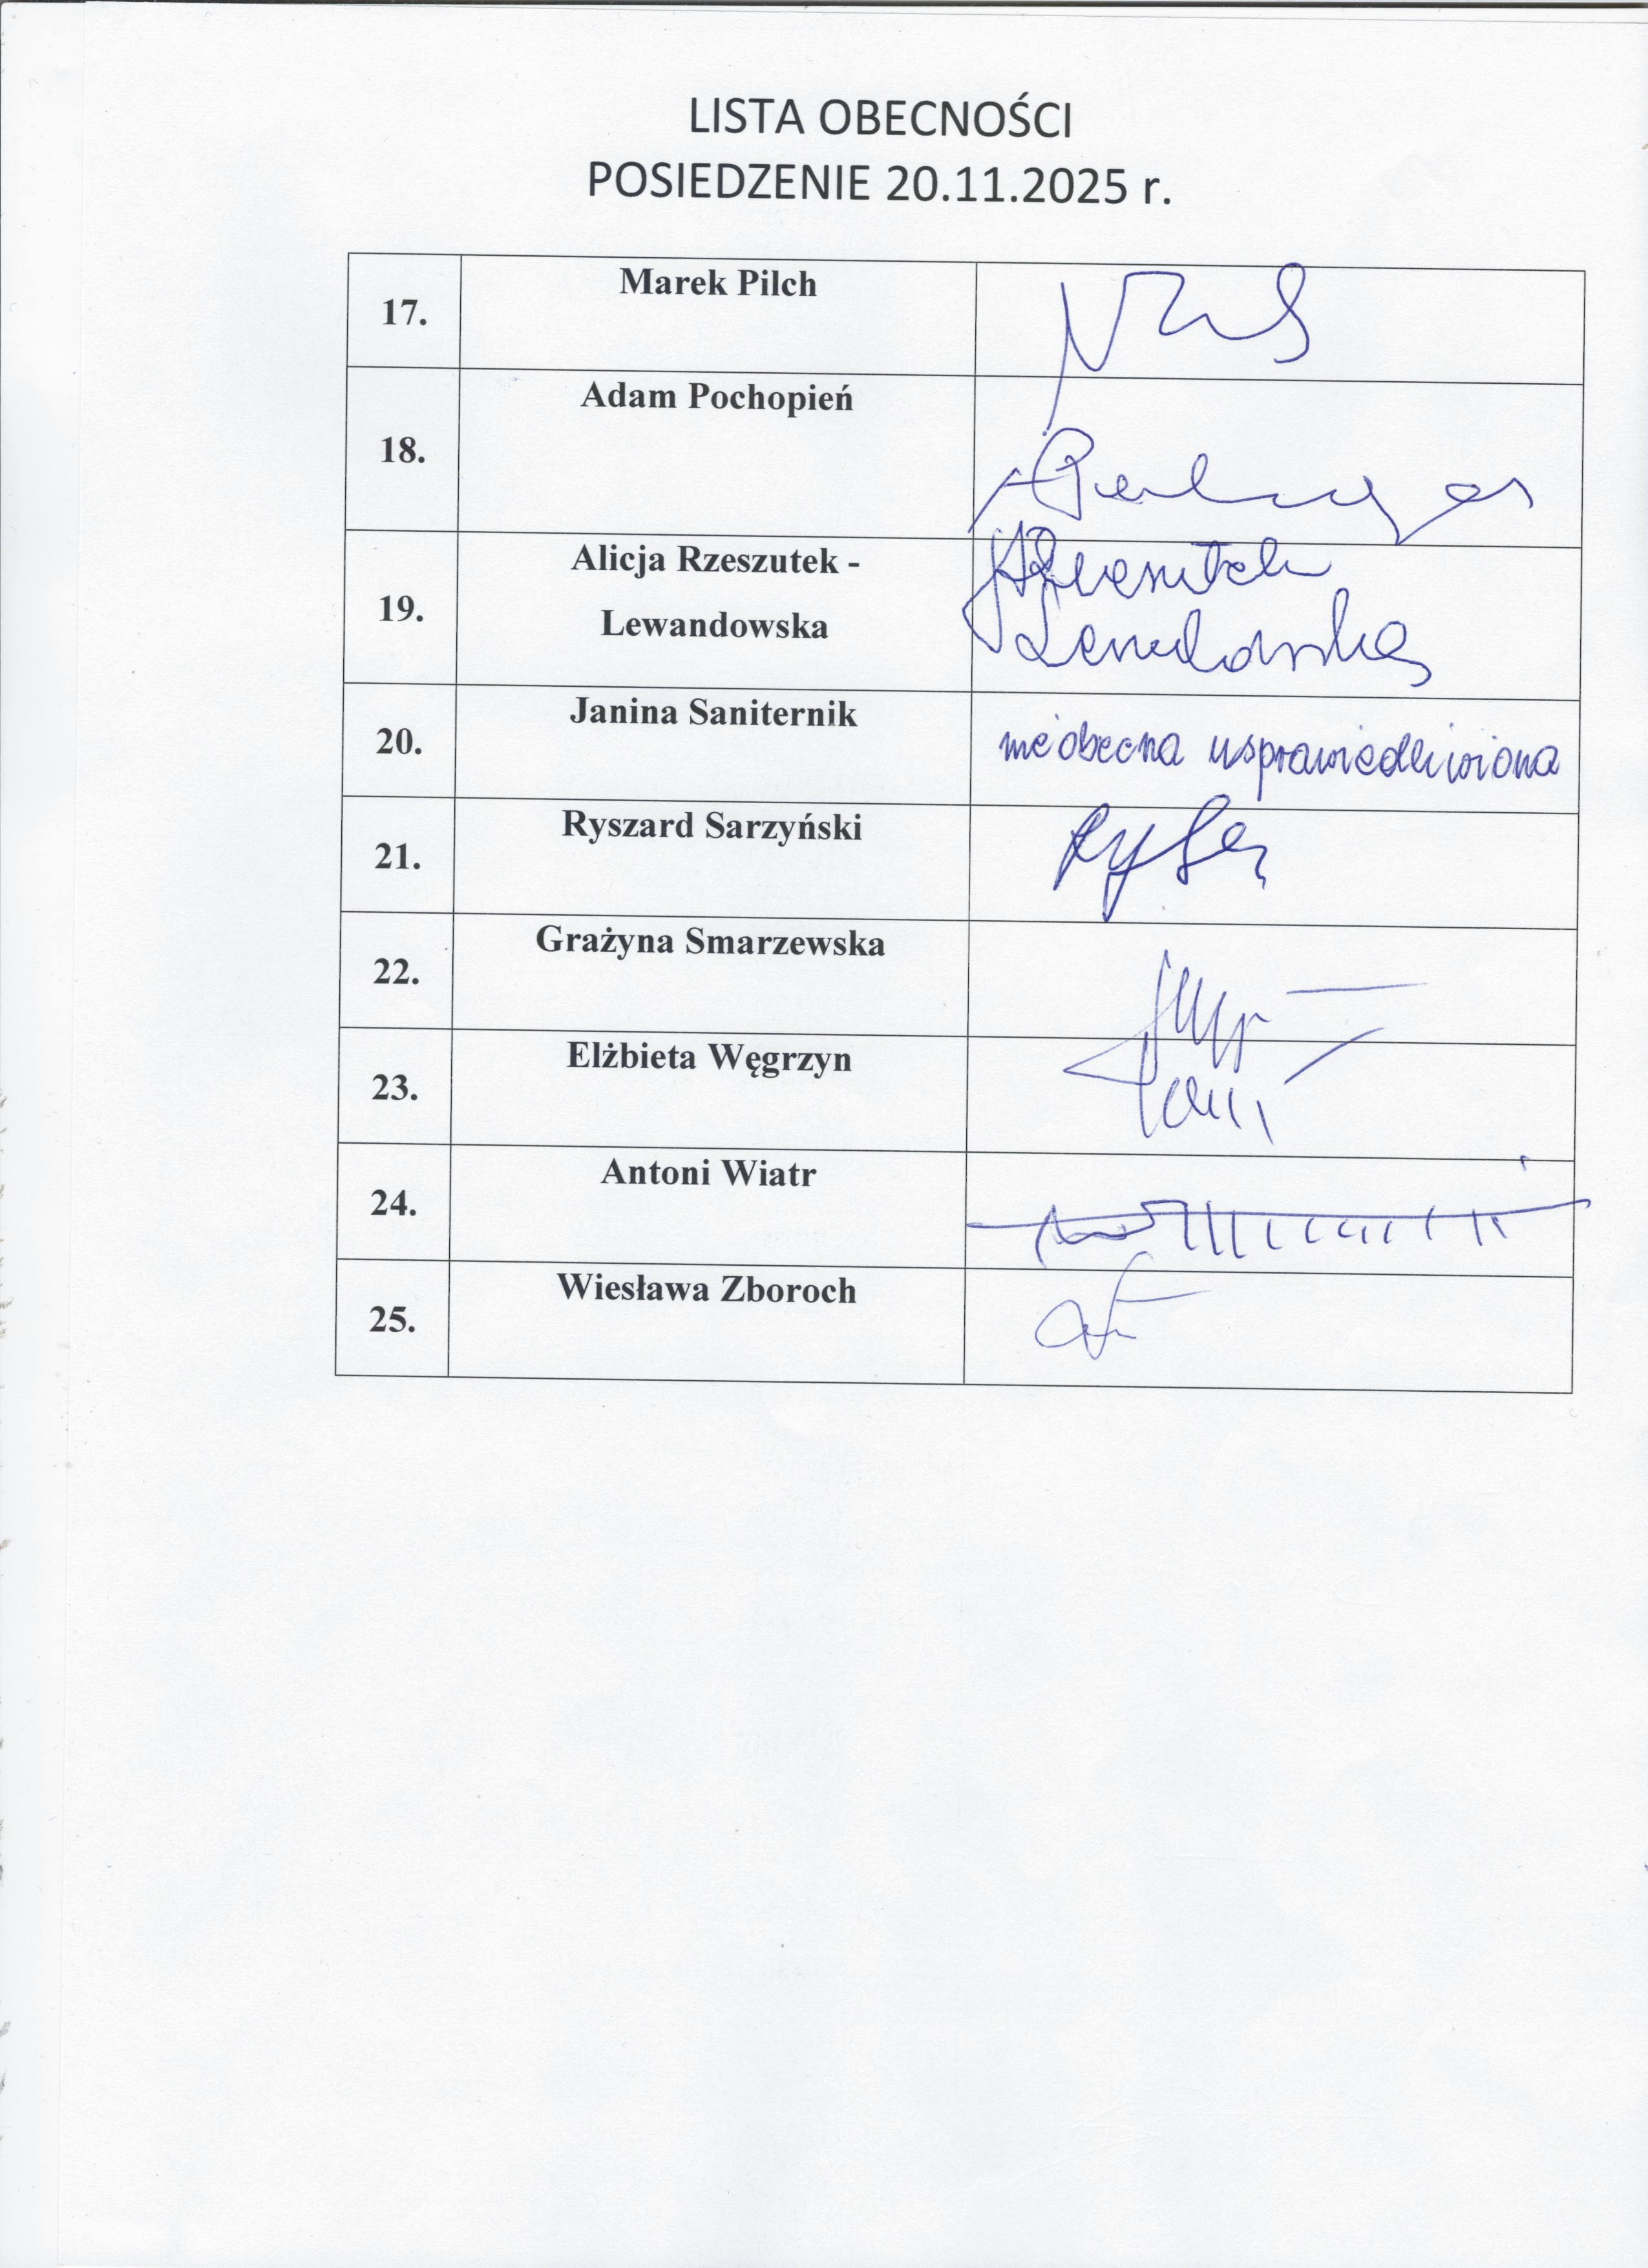 LISTA OBECNOŚCI
POSIEDZENIE 20.11.2025 r.
17. Marek Pilch
18. Adam Pochopień
19. Alicja Rzeszutek -
Lewandowska
20. Janina Saniternik nieobecna usprawiedliwiona
21. Ryszard Sarzyński
22. Grażyna Smarzewska
23. Elżbieta Węgrzyn
24. Antoni Wiatr
25. Wiesława Zboroch